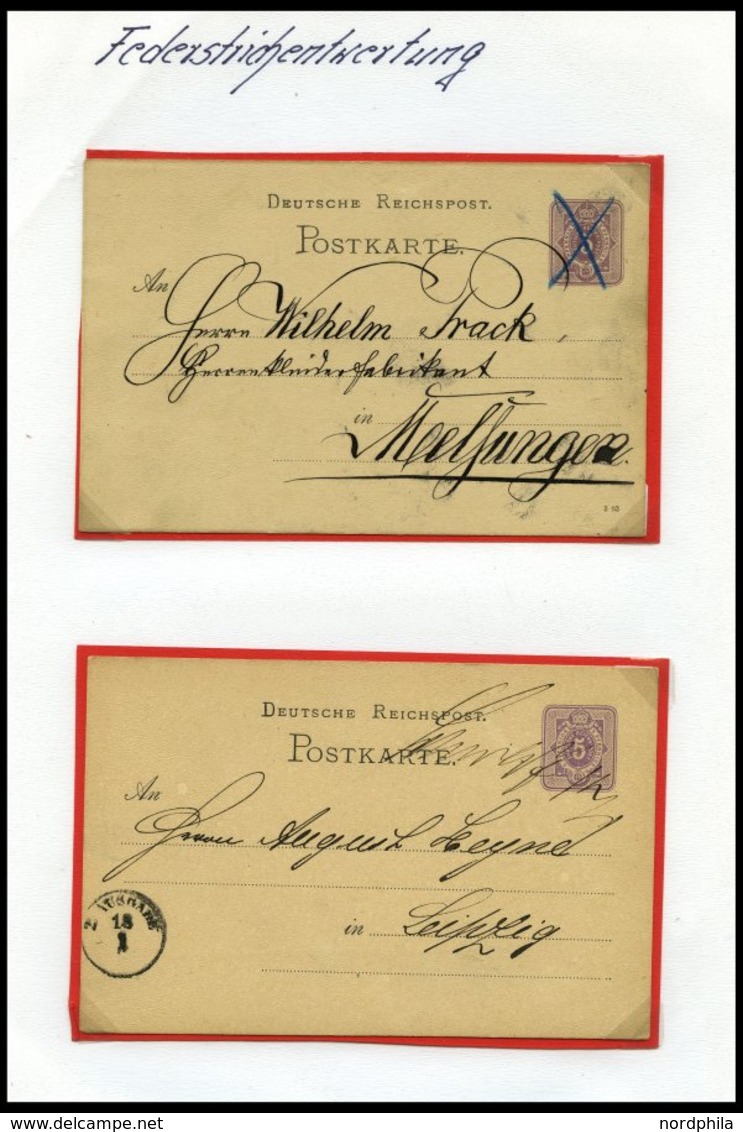 Federstrichentwertung
DEUTSCHE REICHSPOST.
POSTKARTE.
An
Herrn Wilhelm Track,
Herrenkleiderfabrikant
in Melsungen.
3 83
DEUTSCHE REICHSPOST.
POSTKARTE.
5
An
Herrn August Heyne
in Leipzig
AUSGABE
18
nordphila